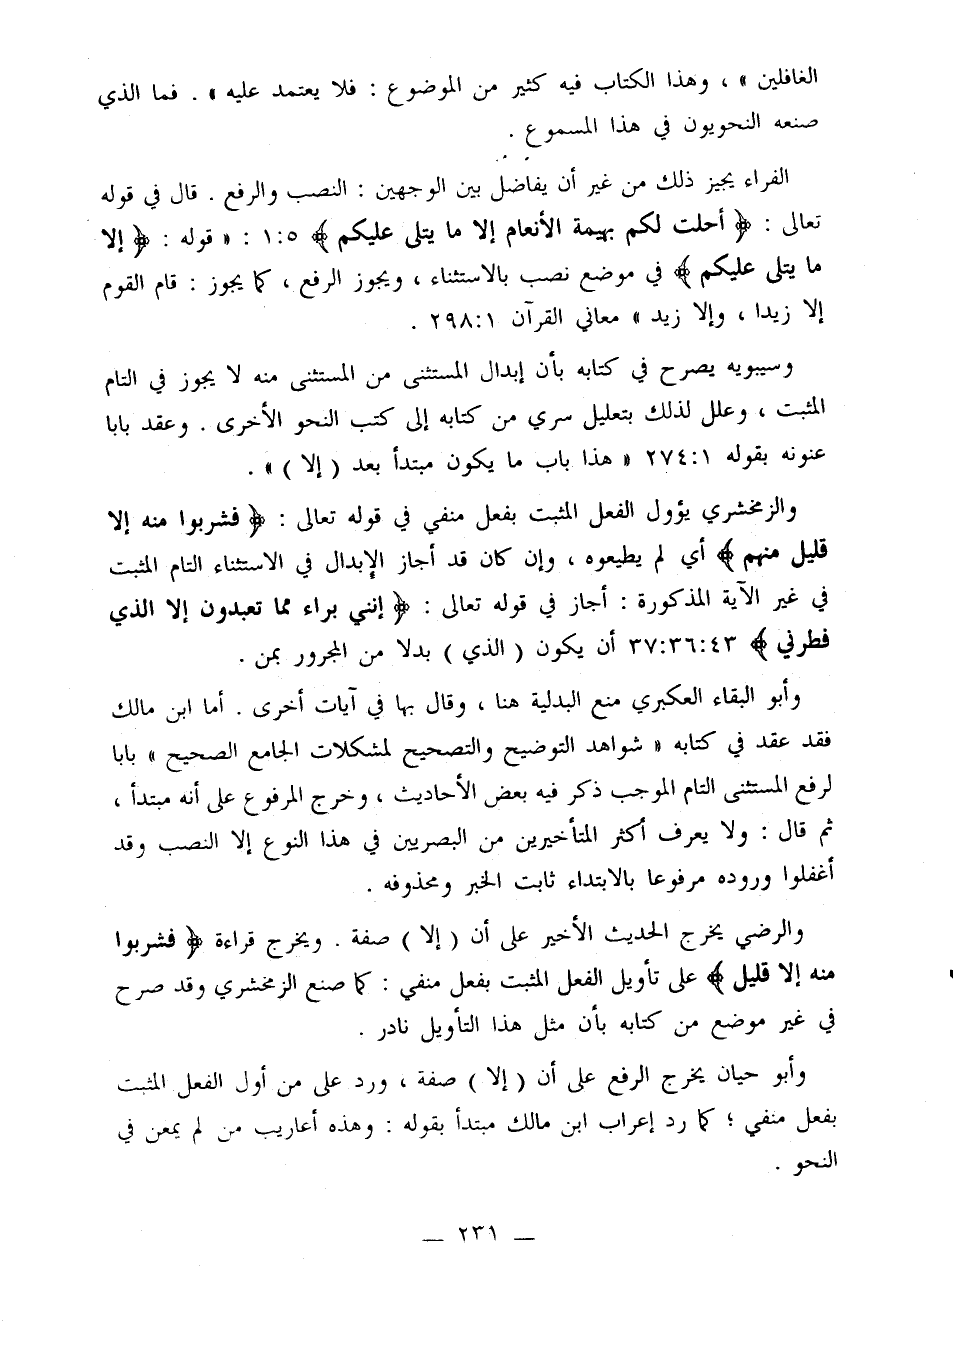 الغافلين » ، وهذا الكتاب فيه كثير من الموضوع : فلا يعتمد عليه » . فما الذي
صنعه النحويون في هذا المسموع .
الفراء يجيز ذلك من غير أن يفاضل بين الوجهين : النصب والرفع . قال في قوله
تعالى : ﴿ أحلت لكم بهيمة الأنعام إلا ما يتلى عليكم ﴾ ١:٥ : « قوله : ﴿ إلا
ما يتلى عليكم ﴾ في موضع نصب بالاستثناء ، ويجوز الرفع ، كما يجوز : قام القوم
إلا زيدا ، وإلا زيد » معاني القرآن ٢٩٨:١ .
وسيبويه يصرح في كتابه بأن إبدال المستثنى من المستثنى منه لا يجوز في التام
المثبت ، وعلل لذلك بتعليل سري من كتابه إلى كتب النحو الأخرى . وعقد بابا
عنونه بقوله ٢٧٤:١ « هذا باب ما يكون مبتدأ بعد ( إلا ) » .
والزمخشري يؤول الفعل المثبت بفعل منفي في قوله تعالى : ﴿ فشربوا منه إلا
قليل منهم ﴾ أي لم يطيعوه ، وإن كان قد أجاز الإبدال في الاستثناء التام المثبت
في غير الآية المذكورة : أجاز في قوله تعالى : ﴿ إنني براء مما تعبدون إلا الذي
فطرني ﴾ ٣٧:٣٦:٤٣ أن يكون ( الذي ) بدلا من المجرور بمن .
وأبو البقاء العكبري منع البدلية هنا ، وقال بها في آيات أخرى . أما ابن مالك
فقد عقد في كتابه « شواهد التوضيح والتصحيح لمشكلات الجامع الصحيح » بابا
لرفع المستثنى التام الموجب ذكر فيه بعض الأحاديث ، وخرج المرفوع على أنه مبتدأ ،
ثم قال : ولا يعرف أكثر المتأخيرين من البصريين في هذا النوع إلا النصب وقد
أغفلوا وروده مرفوعا بالابتداء ثابت الخبر ومحذوفه .
والرضي يخرج الحديث الأخير على أن ( إلا ) صفة . ويخرج قراءة ﴿ فشربوا
منه إلا قليل ﴾ على تأويل الفعل المثبت بفعل منفي : كما صنع الزمخشري وقد صرح
في غير موضع من كتابه بأن مثل هذا التأويل نادر .
وأبو حيان يخرج الرفع على أن ( إلا ) صفة ، ورد على من أول الفعل المثبت
بفعل منفي ؛ كما رد إعراب ابن مالك مبتدأ بقوله : وهذه أعاريب من لم يمعن في
النحو .
— ٢٣١ —